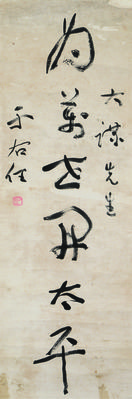 大謀先生
为萬世开太平
于右任